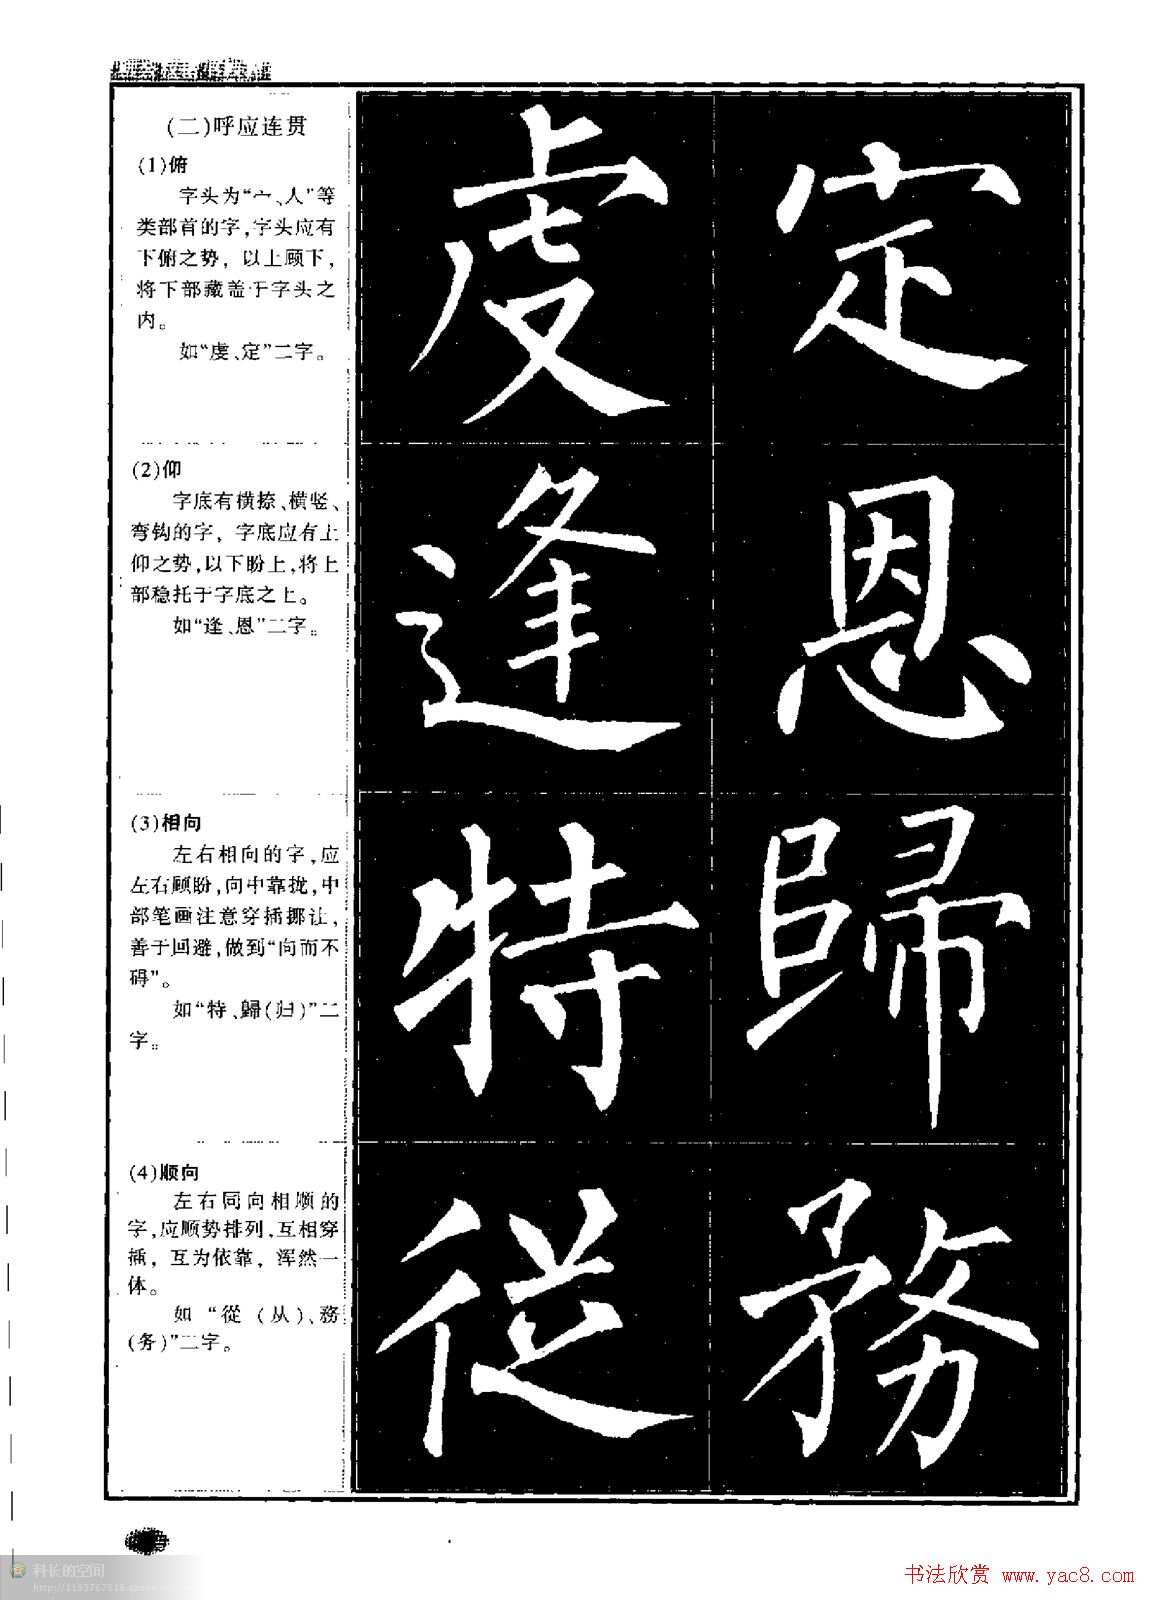 (二)呼应连贯
(1)俯
字头为“宀、人”等
类部首的字,字头应有
下俯之势, 以上顾下,
将下部藏盖于字头之
内。
如“虔、定”二字。
虔 定
(2)仰
字底有横捺、横竖、
弯钩的字, 字底应有上
仰之势,以下盼上,将上
部稳托于字底之上。
如“逢、恩”二字。
逢 恩
(3)相向
左右相向的字,应
左右顾盼,向中靠拢,中
部笔画注意穿插挪让,
善于回避,做到“向而不
碍”。
如“特、歸(归)”二
字。
特 歸
(4)顺向
左右同向相顺的
字,应顺势排列,互相穿
插, 互为依靠, 浑然一
体。
如“從(从)、務
(务)”二字。
從 務
科长的空间
书法欣赏 www.yac8.com